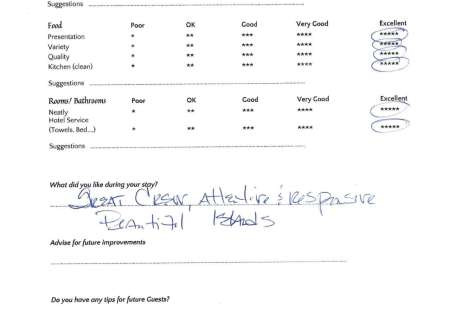 Suggestions
Food Poor OK Good Very Good Excellent
Presentation * ** *** **** *****
Variety * ** *** **** *****
Quality * ** *** **** *****
Kitchen (clean) * ** *** **** *****
Suggestions
Rooms/ Bathrooms Poor OK Good Very Good Excellent
Neatly * ** *** **** *****
Hotel Service
(Towels, Bed...) * ** *** **** *****
Suggestions
What did you like during your stay?
Great Crew, Attentive & Responsive
Beautiful Islands
Advise for future improvements
Do you have any tips for future Guests?